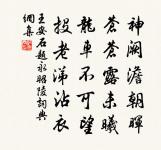 神闕澹朝暉
蒼蒼露未晞
龍車不可望
投老涕沾衣
王安石題永昭陵詞典
網集